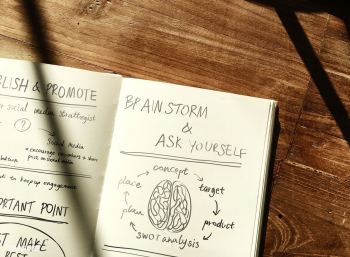 LISH & PROMOTE
social media strategist
?
Social media
• encourage members to share
posts on social media
to keep up engagement
ORTANT POINT
ST MAKE
BRAINSTORM
&
ASK YOURSELF
concept
target
product
SWOT analysis
plan
place